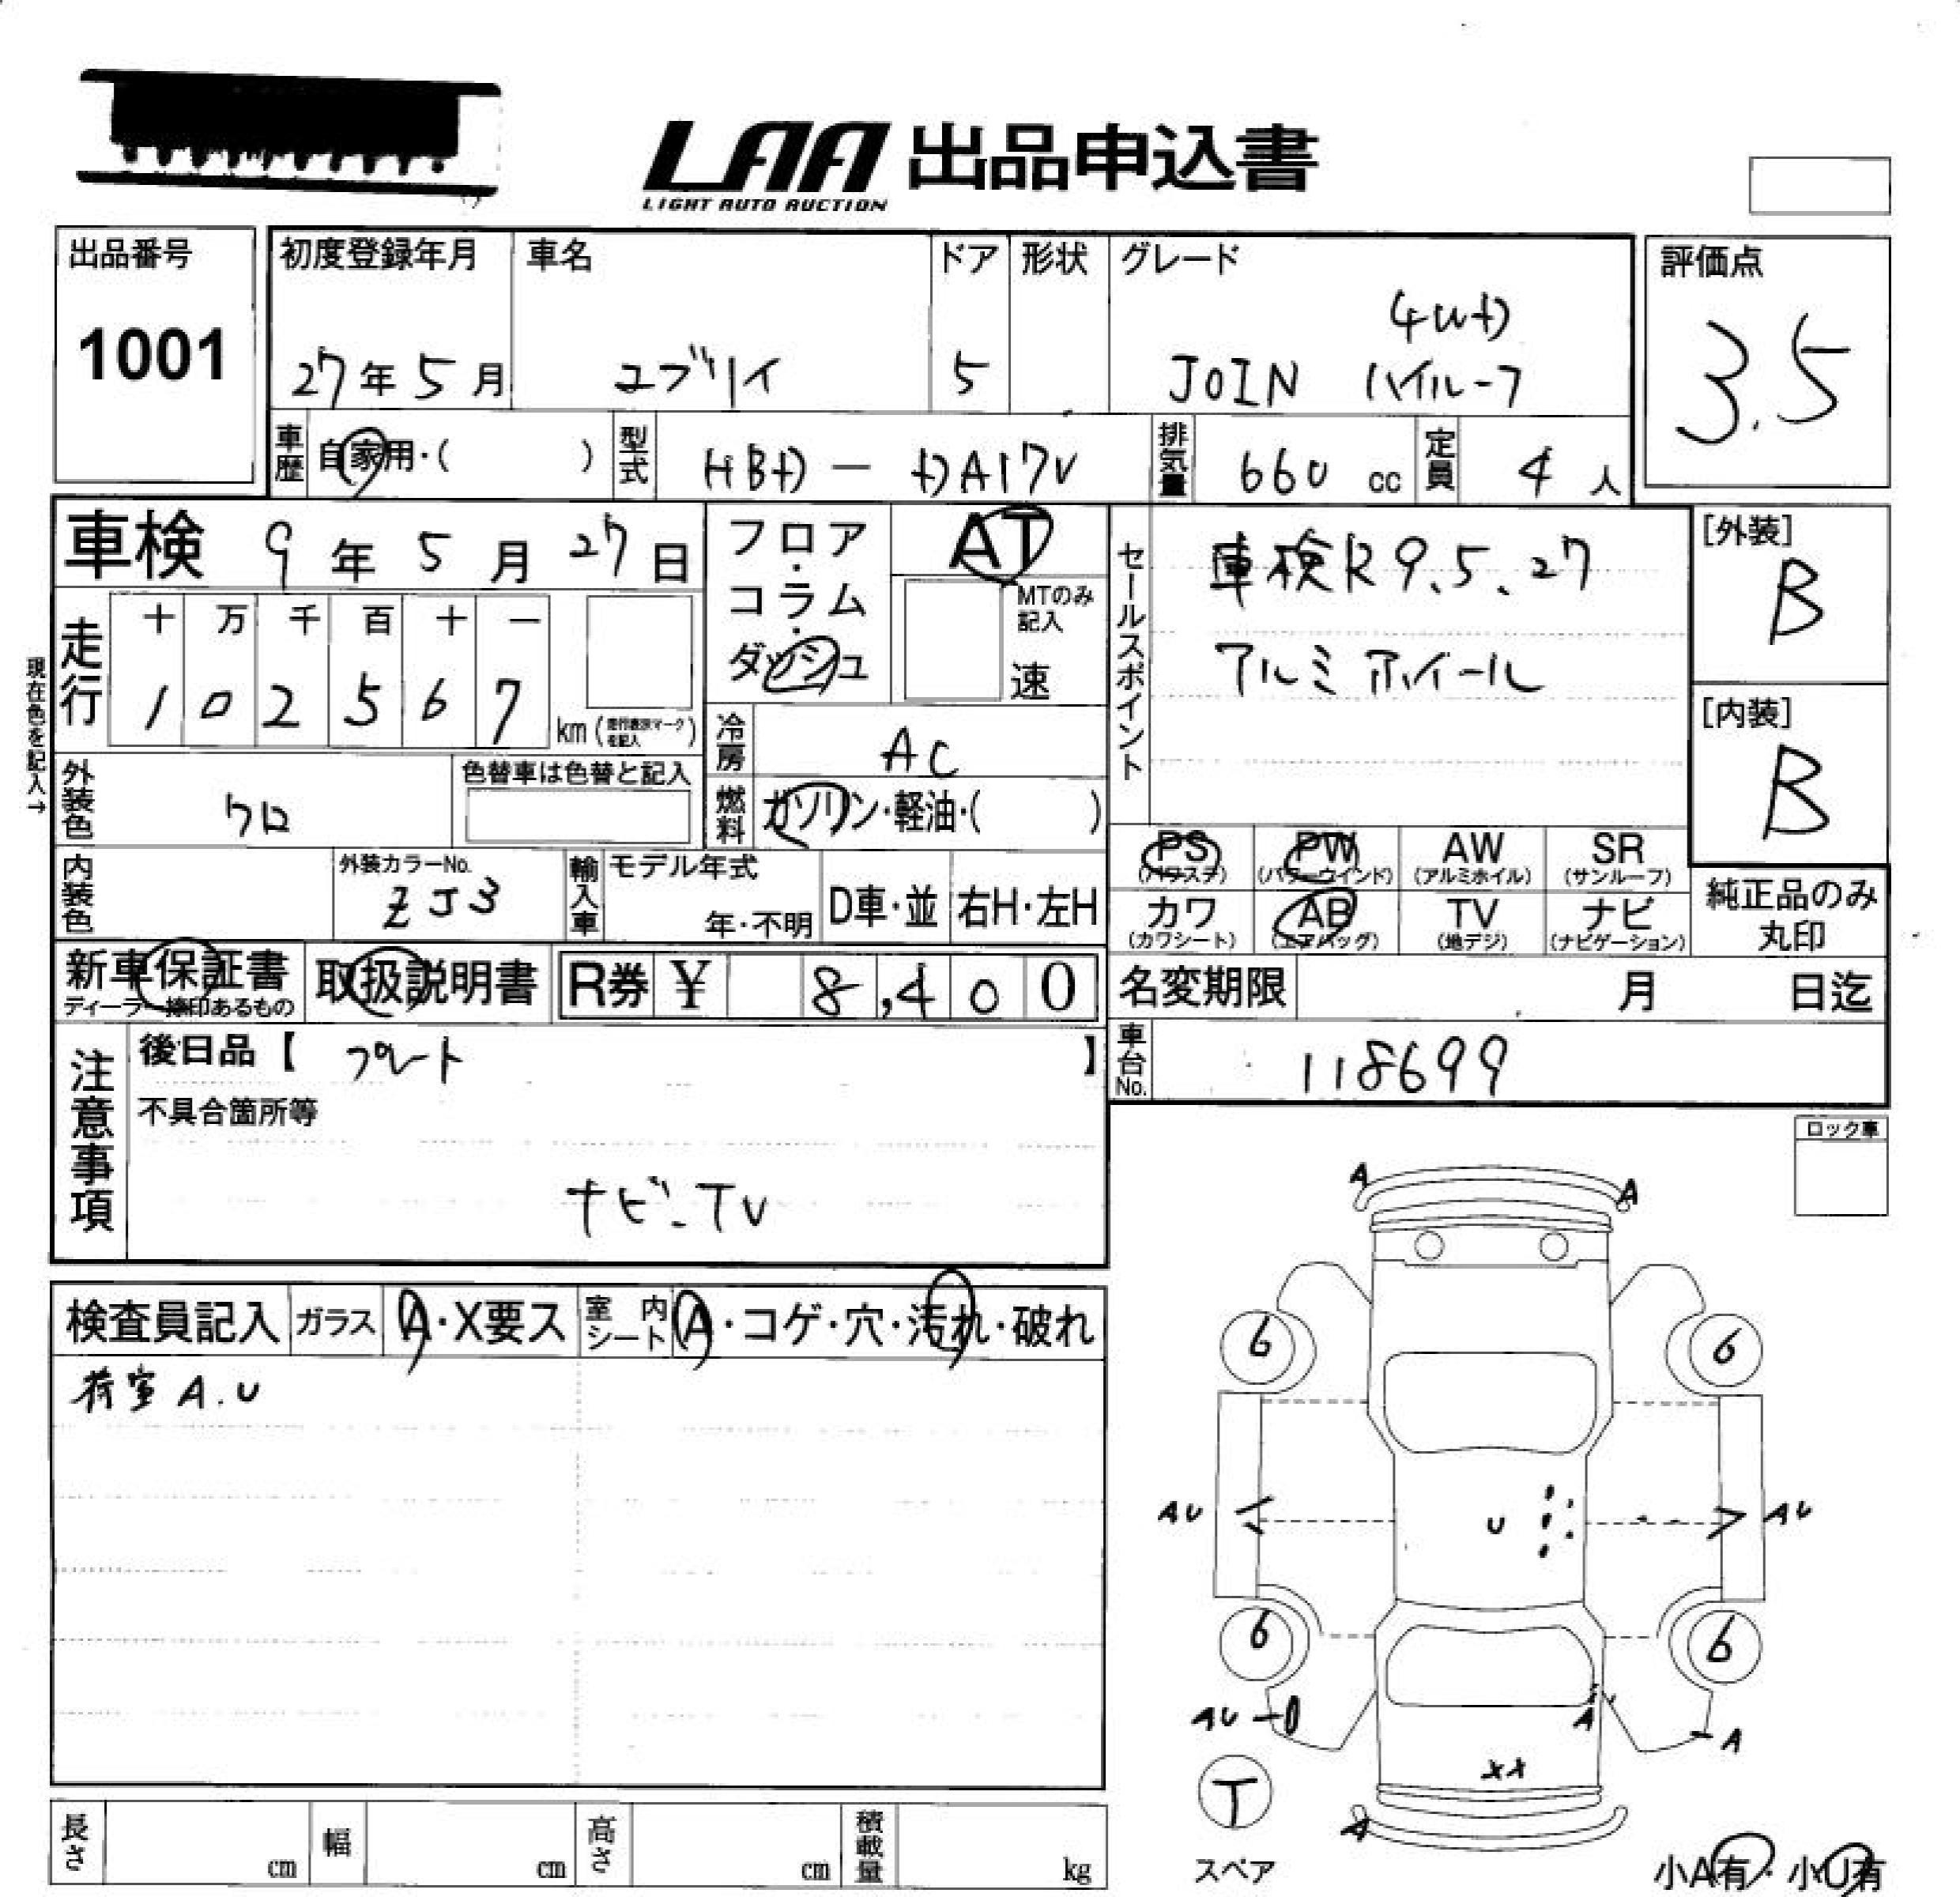 LAA 出品申込書
LIGHT AUTO AUCTION
出品番号
1001
初度登録年月
27年5月
車名
エブリイ
ドア
5
形状
グレード
4WD
JOIN ハイルーフ
評価点
3.5
車歴
自家用・( )
型式
HBD-DA17V
排気量
660 cc
定員
4 人
車検 9年5月27日
フロア・コラム・ダッシュ
AT
MTのみ記入
速
セールスポイント
車検R9.5.27
アルミホイール
[外装]
B
[内装]
B
現在色を記入→
走行
十 万 千 百 十 一
1 0 2 5 6 7
km (走行表示マークを記入)
冷房
AC
燃料
ガソリン・軽油・( )
外装色
クロ
色替車は色替と記入
内装色
外装カラーNo.
ZJ3
輸入車
モデル年式
年・不明
D車・並
右H・左H
PS (パワステ)
PW (パワーウインド)
AW (アルミホイル)
SR (サンルーフ)
カワ (カワシート)
AB (エアバッグ)
TV (地デジ)
ナビ (ナビゲーション)
純正品のみ丸印
新車保証書
ディーラー捺印あるもの
取扱説明書
R券 ¥ 8,400
名変期限 月 日迄
車台No.
118699
注意事項
後日品【 プレート 】
不具合箇所等
ナビ.TV
ロック車
検査員記入
ガラス
A・X要ス
室内シート
A・コゲ・穴・汚れ・破れ
荷室 A.U
A
A
6
6
AU
U
AU
6
6
AU
A
A
XX
T
スペア
A
小A有・小U有
長さ
cm
幅
cm
高さ
cm
積載量
kg